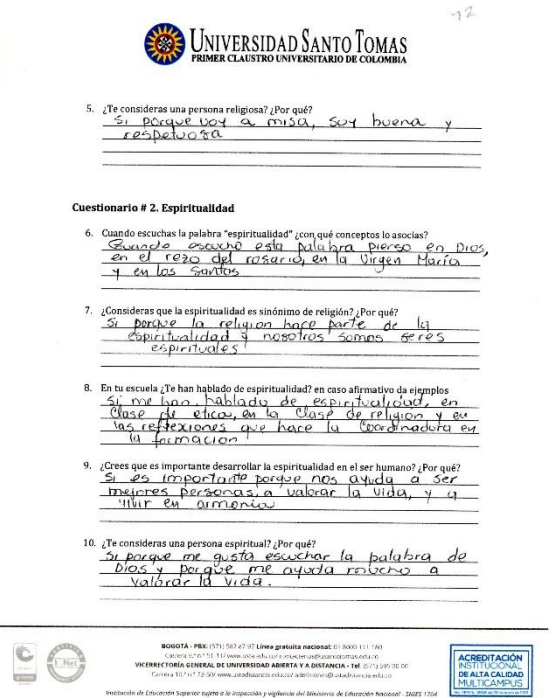 12
UNIVERSIDAD SANTO TOMAS
PRIMER CLAUSTRO UNIVERSITARIO DE COLOMBIA
5. ¿Te consideras una persona religiosa? ¿Por qué?
Si porque voy a misa, soy buena y
respetuosa
Cuestionario # 2. Espiritualidad
6. Cuando escuchas la palabra "espiritualidad" ¿con qué conceptos lo asocias?
Cuando escucho esta palabra pienso en Dios,
en el rezo del rosario, en la Virgen María
y en los Santos
7. ¿Consideras que la espiritualidad es sinónimo de religión? ¿Por qué?
Si porque la religion hace parte de la
espiritualidad y nosotros somos seres
espirituales
8. En tu escuela ¿Te han hablado de espiritualidad? en caso afirmativo da ejemplos
Si me han hablado de espiritualidad, en
Clase de etica, en la Clase de religion y en
las reflexiones que hace la Coordinadora en
la formacion
9. ¿Crees que es importante desarrollar la espiritualidad en el ser humano? ¿Por qué?
Si es importante porque nos ayuda a ser
mejores personas, a valorar la vida, y a
vivir en armonia
10. ¿Te consideras una persona espiritual? ¿Por qué?
Si porque me gusta escuchar la palabra de
Dios y porque me ayuda mucho a
Valorar la vida.
BOGOTÁ - PBX: (571) 587 87 97 Línea gratuita nacional: 01 8000 111 180
VICERRECTORÍA GENERAL DE UNIVERSIDAD ABIERTA Y A DISTANCIA - Tel: (571) 595 00 00
Institución de Educación Superior sujeta a la inspección y vigilancia del Ministerio de Educación Nacional - SNIES 1704
IQNet
ACREDITACIÓN
INSTITUCIONAL
DE ALTA CALIDAD
MULTICAMPUS